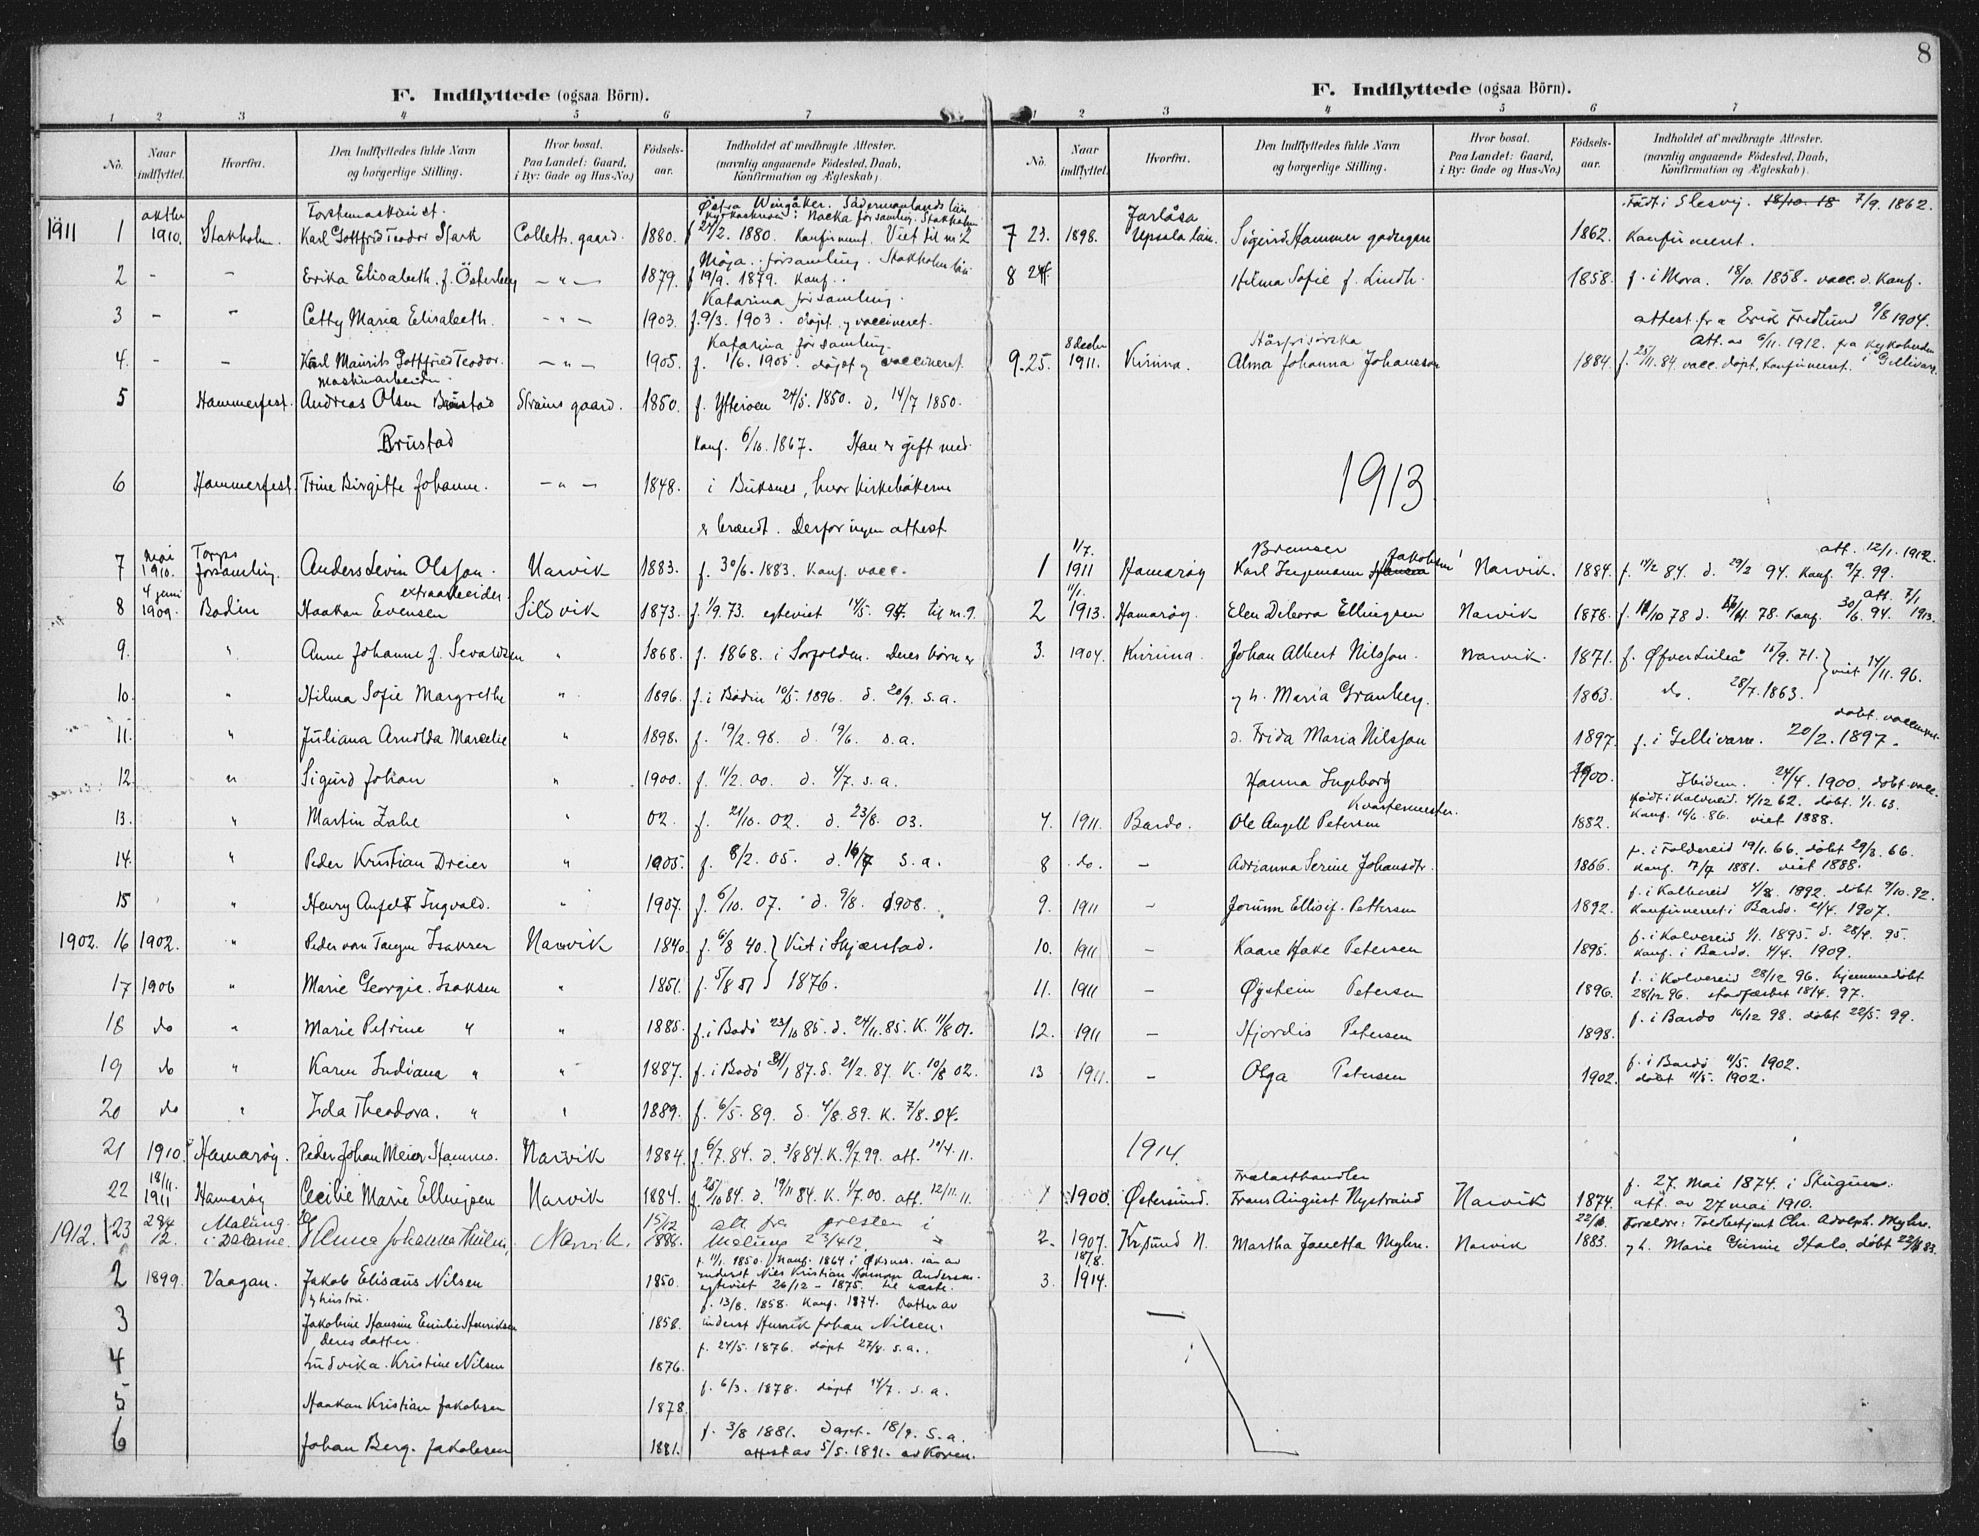 8
F. Indflyttede (ogsaa Börn).
1 2 3 4 5 6 7
No. Naar indflyttet. Hvorfra. Den Indflyttedes fulde Navn og borgerlige Stilling. Hvor bosat. Paa Landet: Gaard, i By: Gade og Hus-No.) Födsels-aar. Indholdet af medbragte Attester. (navnlig angaaende Födested, Daab, Konfirmation og Ægteskab).
1911 1 1910. Stokholm. Karl Gottfrid Teodor Stark Colletts gaard. 1880. Østra Wingåker. Södermanlands län
Nacka församling. Stokholm
2/2. 1880. Konfirment. Viet til nr 2
2 - - Erika Elisabeth. f. Österberg - " - 1879. Möja församling. Stokholms län
f 19/9. 1879. Konf.
3 - - Cetty Maria Elisabeth. - " - 1903. Katarina församling.
f. 9/3. 1903. döpt og vaccineret.
4. - - Karl Maurits Gottfried Teodor. - " - 1905. Katarina församling.
f. 1/6. 1905. döpt og vaccineret.
maskinarbeider
5 Hammerfest. Andreas Olsen Strøms gaard. 1850. f. Ytterøen 24/5. 1850. d. 14/7 1850.
Brustad Konf. 6/10. 1867. Han er gift med
6 Hammerfest. Trine Birgitte Johanne. - " - 1848. i Buksnes, hvor kirkebøkerne
er brændt. Derfor ingen attest
7 mai 1910. Torps församling. Anders Levin Olsson. Narvik 1883. f. 30/6. 1883. Konf. vacc.
extraarbeider
8 4 juni 1909. Bodin Haakon Evensen Sildvik 1873. f. 1/9. 73. egteviet 14/5. 94. til nr. 9.
9. " Anne Johanne f. Sevaldsen " 1868. f. 1868. i Sørfolden. Deres børn er
10. " Hilma Sofie Margrethe " 1896. f. i Bodin 10/5. 1896. d. 20/9. s.a.
11. " Juliana Arnolda Marcelie 1898. f. 19/2. 98. d. 19/6. s.a.
12. " Sigurd Johan " 1900. f. 11/2. 00. d. 4/7. s.a.
13. " Martin Zahl " 02. f. 21/10. 02. d. 23/8. 03.
14. " Peder Kristian Dreier " 1905. f. 8/2. 05. d. 16/7 s.a.
15 " Henry Anfelt Ingvald. " 1907. f. 6/10. 07. d. 9/8. 1908.
1902. 16 1902. " Peder von Tangen Isaksen Narvik 1840. f. 6/8 40. } Viet i Skjerstad.
17 1906 " Marie Georgie. Isaksen " 1851. f. 5/8 51 } 1876.
18 do " Marie Petrine " " 1885. f. i Bodö 23/10 85. d. 24/11. 85. K. 11/8 01.
19 do " Karen Indiana " " 1887. f. i Bodö 31/1 87. d. 21/2. 87. K. 10/8 02.
20 do " Ida Theodora. " " 1889. f. 6/5. 89. d. 4/8. 89. K. 7/8. 04.
21 1910. Hamarøy. Peder Johan Meier Hamnes. Narvik 1884. f. 6/7. 84. d. 3/8 84. K. 9/7. 99. att. 10/4. 11.
22 18/11. 1911 Hamarøy Cecilie Marie Ellingsen Narvik 1884. f. 25/10 84. d. 19/11 84. K. 1/7. 00. att. 12/11. 11.
1912. 23 284/2 Malung i Dalarne. Hanna Johanna Narvik. 15/12 1886. att. fra presten i
Malung 2 3/4 12.
2 1899. Vaagan. Jakob Elisæus Nilsen 1850. f. 11/1. 1850. Konf. 1864 i Øksnes. søn av
inderst Niels Kristian Andersen.
egteviet 26/12 - 1875. til næste.
og hustru.
3 Jakobine Hansine Emilie Henriksen 1858. f. 13/8. 1858. Konf. 1874. Datter av
inderst Henrik Johan Nilsen.
deres datter.
4 Ludvika. Kristine Nilsen 1876. f. 24/5. 1876. døpt 27/8. s.a.
5 Haakon Kristian Jakobsen 1878 f. 6/3. 1878. døpt 14/7. s.a.
6 Johan Berg. Jakobsen 1881. f. 3/8 1881. Døpt. 18/9. s.a.
attest av 5/5. 1891. av Koren.
F. Indflyttede (ogsaa Börn).
1 2 3 4 5 6 7
No. Naar indflyttet. Hvorfra. Den Indflyttedes fulde Navn og borgerlige Stilling. Hvor bosat. Paa Landet: Gaard, i By: Gade og Hus-No.) Födsels-aar. Indholdet af medbragte Attester. (navnlig angaaende Födested, Daab, Konfirmation og Ægteskab).
7 23. 1898. Jarlåsa Upsala län. Sigurd Hammer 1862. Født i Slesvig. 7/9. 1862.
Konfirment.
8 24 Hilma Sofie f. Lindh. 1858. f. i Mora. 18/10. 1858. vacc. d. Konf.
attest fra Erik Fredlund 9/8 1904.
9. 25. 8 decbr 1911. Kiruna. Alma Johanna Johansson 1884. Att. av 6/11. 1912. fra
f. 25/11. 84. vacc. døpt, Konfirmeret. i Gellivare.
1913
1 1/7. 1911 Hamarøy Bremser Karl Ingemann Hansen Jakobsen Narvik. 1884. att. 12/1. 1912.
f. 11/2 84. d. 29/2 94. Konf. 9/7. 99.
2 1/1. 1913. Hamarøy. Elen Debora Ellingsen Narvik 1878. f. 11/10 78 d. 17/11. 78. Konf. 30/6. 94. att. 7/1 1913.
3. 1904. Kiruna. Johan Albert Nilsson. Narvik. 1871. f. Øfver Luleå 10/9. 71. } viet 14/11. 96.
og h. Maria Granberg. 1863. do. 28/7. 1863.
d. Frida Maria Nilsson 1897. f. i Gellivare. 20/2. 1897. døbt. vaccineret.
Hanna Ingeborg 1900. Ibidem. 24/4. 1900. døbt vacc.
7. 1911. Bardo. Kvartermester. Ole Angell Petersen 1882. født i Kolvereid. 4/12 62. døbt. 1/1. 63.
Konf. 16/6. 86. viet 1888.
8 do. - Adrianna Serine Johansdtr. 1866. f. i Foldereid 19/1. 66. døbt 29/3. 66.
Konf. 17/7 1881. viet 1888.
9. 1911 - Jorunn Ellisif. Pettersen 1892. f. i Kolvereid 4/8. 1892. døbt 9/10. 92.
Konfirmeret i Bardo. 21/4. 1907.
10. 1911 - Kaare Hake Petersen 1895. f. i Kolvereid 1/1. 1895. d. 28/4. 95.
Konf. i Bardo. 4/4. 1909.
11. 1911 - Øystein Petersen 1896. f. i Kolvereid 28/12 96. hjemmedøbt
28/12 96. stadfæstet 18/4. 97.
12. 1911 - Hjordis Petersen 1898. f. i Bardo 16/12 98. døbt 22/5. 99.
13 1911. - Olga Petersen 1902. f. i Bardo 11/5. 1902.
døbt 11/5. 1902.
1914.
1 1900. Østersund. Frans August Nystrand Narvik 1874. f. 27. mai 1874. i Stugun.
att. av 27 mai 1910.
2. 1907. Kr.sund N. Martha Janetta Myhre. Narvik 22/10. 1883. Foreldre: Toldbetjent Chr. Adolph. Myhre.
og h. Marie Hals. døbt
3. 18/8. 1914.